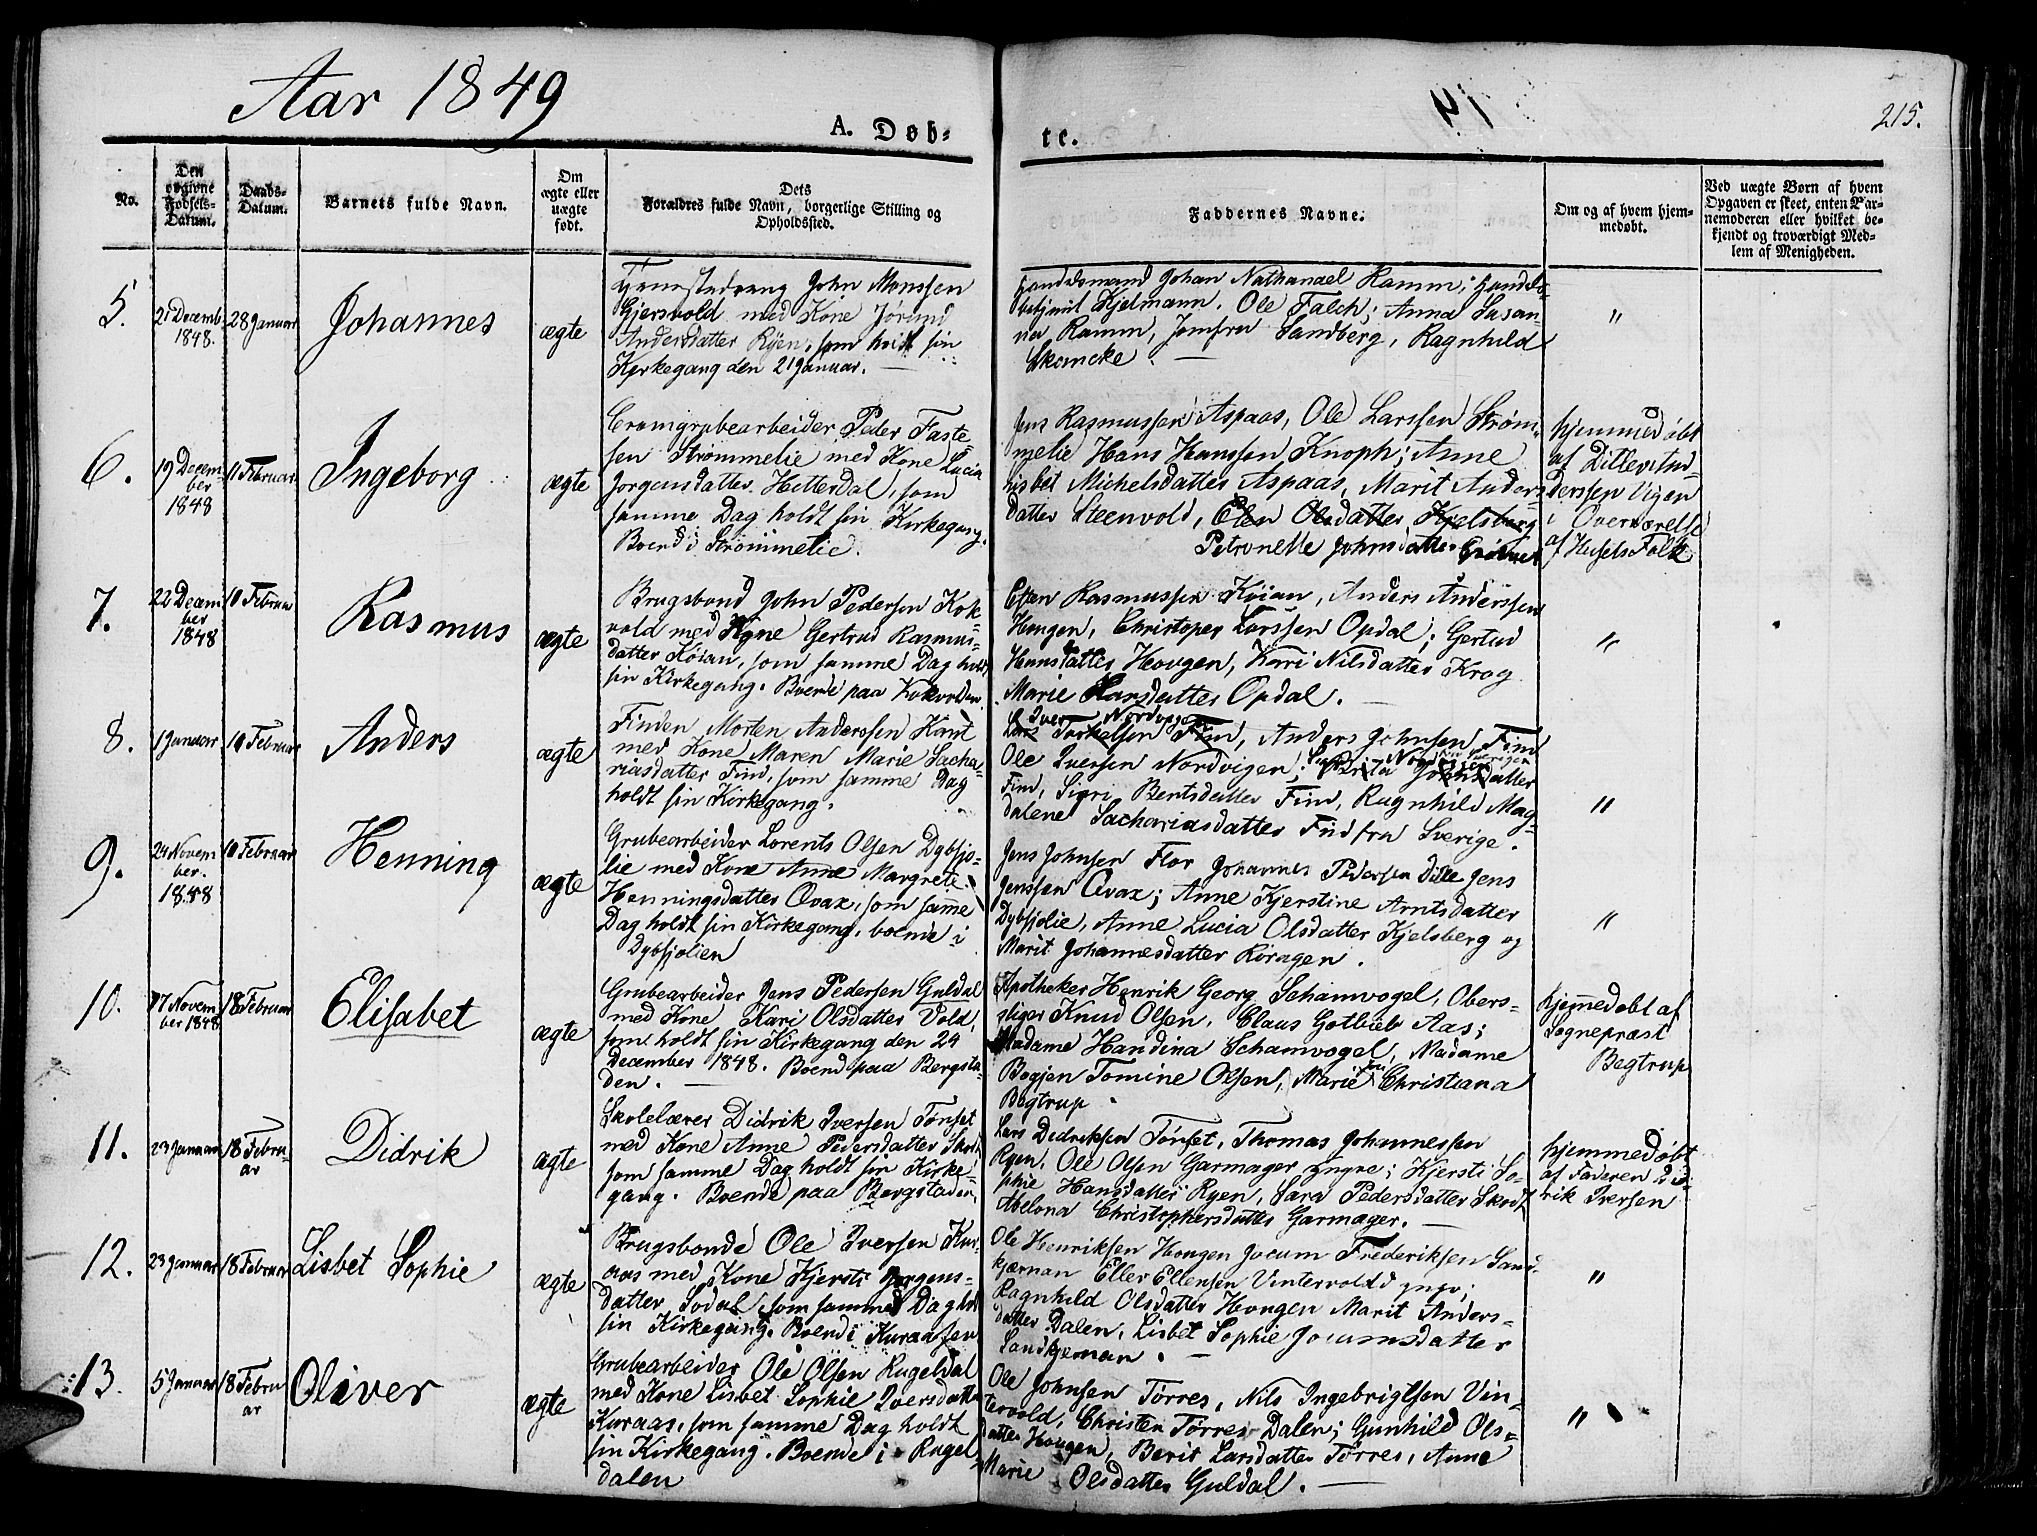 Aar 1849
215.
A. Døb-
te.
No.
Den opgivne Fødsels-Datum.
Daabs-Datum.
Barnets fulde Navn.
Om ægte eller uægte født.
Dets Forældres fulde Navn, borgerlige Stilling og Opholdssted.
Faddernes Navne.
Om og af hvem hjemmedøbt.
Ved uægte Børn af hvem
Opgaven er skeet, enten Bar-
nemoderen eller hvilket be-
kjendt og troværdigt Med-
lem af Menigheden.
5.
Decemb
1848.
28 Januar
Johannes
ægte
John Monssen
Gjersvold med Kone Jørund
Andersdatter Ryen, som holdt sin
Kirkegang den 21 Januar.
Handelsmand Johan Nathanael Ramm; Handels-
betjent Kjelmann, Ole Falch; Anna Susan-
na Ramm, Jomfru Sandberg, Ragnhild
Skancke.
"
6.
19 Decem-
ber
1848
11 Februar
Ingeborg
ægte
Cromgrubearbeider Peder Faste-
sen Strømmelie med Kone Lucia
Jorgensdatter Hitterdal, som
samme Dag holdt sin Kirkegang.
Boend i Strømmelie.
Jens Rasmussen Aspaas, Ole Larssen Strøm-
melie Hans Hanssen Knoph; Anne
Lisbet Michelsdatter Aspaas, Marit Anders-
datter Steenvold, Elen Olsdatter Kjelsberg
Petronelle Johnsdatter
hjemmedøbt
af Ditlev
derssen Vigen
i Overværelse
af Husets Folk
7.
22 Decem
ber
1848
10 Februar
Rasmus
ægte
Brugsbond John Pedersen Kok-
vold med Kone Gertrud Rasmus-
datter Køian, som samme Dag holdt
sin Kirkegang. Boende paa Kokvolden
Esten Rasmussen Køian, Anders Anderssen
Hougen, Christopher Larssen Opdal; Gertud
Hansdatter Hougen, Kari Nilsdatter Krog
Marie Larsdatter Opdal.
"
8.
1 Januar
10 Februar
Anders
ægte
Finden Morten Anderssen Kant
med Kone Maren Marie Sacha-
riasdatter Find, som samme Dag
holdt sin Kirkegang.
Iver Nordvigen
Lars Torkelsen Find, Anders Johnsen Find
Ole Iversen Nordvigen; Johnsdatter
Find, Siri Bentsdatter Find, Ragnhild Mag-
dalene Sachariasdatter Find fra Sverige.
"
9.
24 Novem
ber.
1848
10 Februar
Henning
ægte
Grubearbeider Lorents Olsen Dybsjo-
lie med Kone Anne Margrete
Henningsdatter Qvax, som samme
Dag holdt sin Kirkegang, boende i
Dybsjolien
Jens Johnsen Flor Johannes Pedersen Dille Jens
Jenssen Qvax; Anne Kjerstine Arntsdatter
Dybsjolie, Anne Lucia Olsdatter Kjelsberg og
Marit Johannesdatter Røragen.
"
10.
17 Novem
ber 1848
18 Februar
Elisabet
ægte
Grubearbeider Jens Pedersen Guldal
med Kone Kari Olsdatter Vold,
som holdt sin Kirkegang den 24
December 1848. Boend paa Bergsta-
den.
Apotheker Henrik Georg Schamvogel, Obers-
stiger Knud Olsen, Claus Gotlieb Aas;
Madame Handina Schamvogel, Madame
Bogjen Tomine Olsen, Marie Christiana
Begtrup
Hjemmedøbt af
Sognepræst
Begtrup
11.
23 Januar
18 Febru-
ar
Didrik
ægte
Skolelærer Didrik Iversen Tønset
med Kone Anne Pedersdatter Skodt
som samme Dag holdt sin Kirke-
gang. Boende paa Bergstaden
Lars Didriksen Tønset, Thomas Johannessen
Ryen, Ole Olsen Garmager yngre; Kjersti So-
phie Hansdatter Ryen, Sara Pedersdatter Skodt
Abelona Christophersdatter Garmager.
hjemmedøbt
af Faderen Did-
rik Iversen
12.
23 Januar
18 Februar
Lisbet Sophie
ægte
Brugsbonde Ole Iversen Kur-
aas med Kone Kjersti Jorgens-
datter Sodal, som samme Dag holdt
sin Kirkegang. Boend i Kuraasen
Ole Henriksen Hougen Jocum Frederiksen Sand-
kjernan Eller Ellensen Vintervold yngr;
Ragnhild Olsdatter Hougen Marit Anders-
datter Dalen, Lisbet Sophie Jocumsdatter
Sandkjernan.
"
13.
5 Januar
18 Febru
ar
Oliver
ægte
Grubearbeider Ole Olsen Rugeldal
med Kone Lisbet Sophie Iversdatter
Kuraas, som samme Dag holdt
sin Kirkegang. Boende i Rugel-
dalen
Ole Johnsen Tørres, Nils Ingebrigtsen Vin-
tervold, Christen Tørres Dalen; Gunhild Ols-
datter Hougen, Berit Larsdatter Tørres, Anne
Marie Olsdatter Guldal.
"